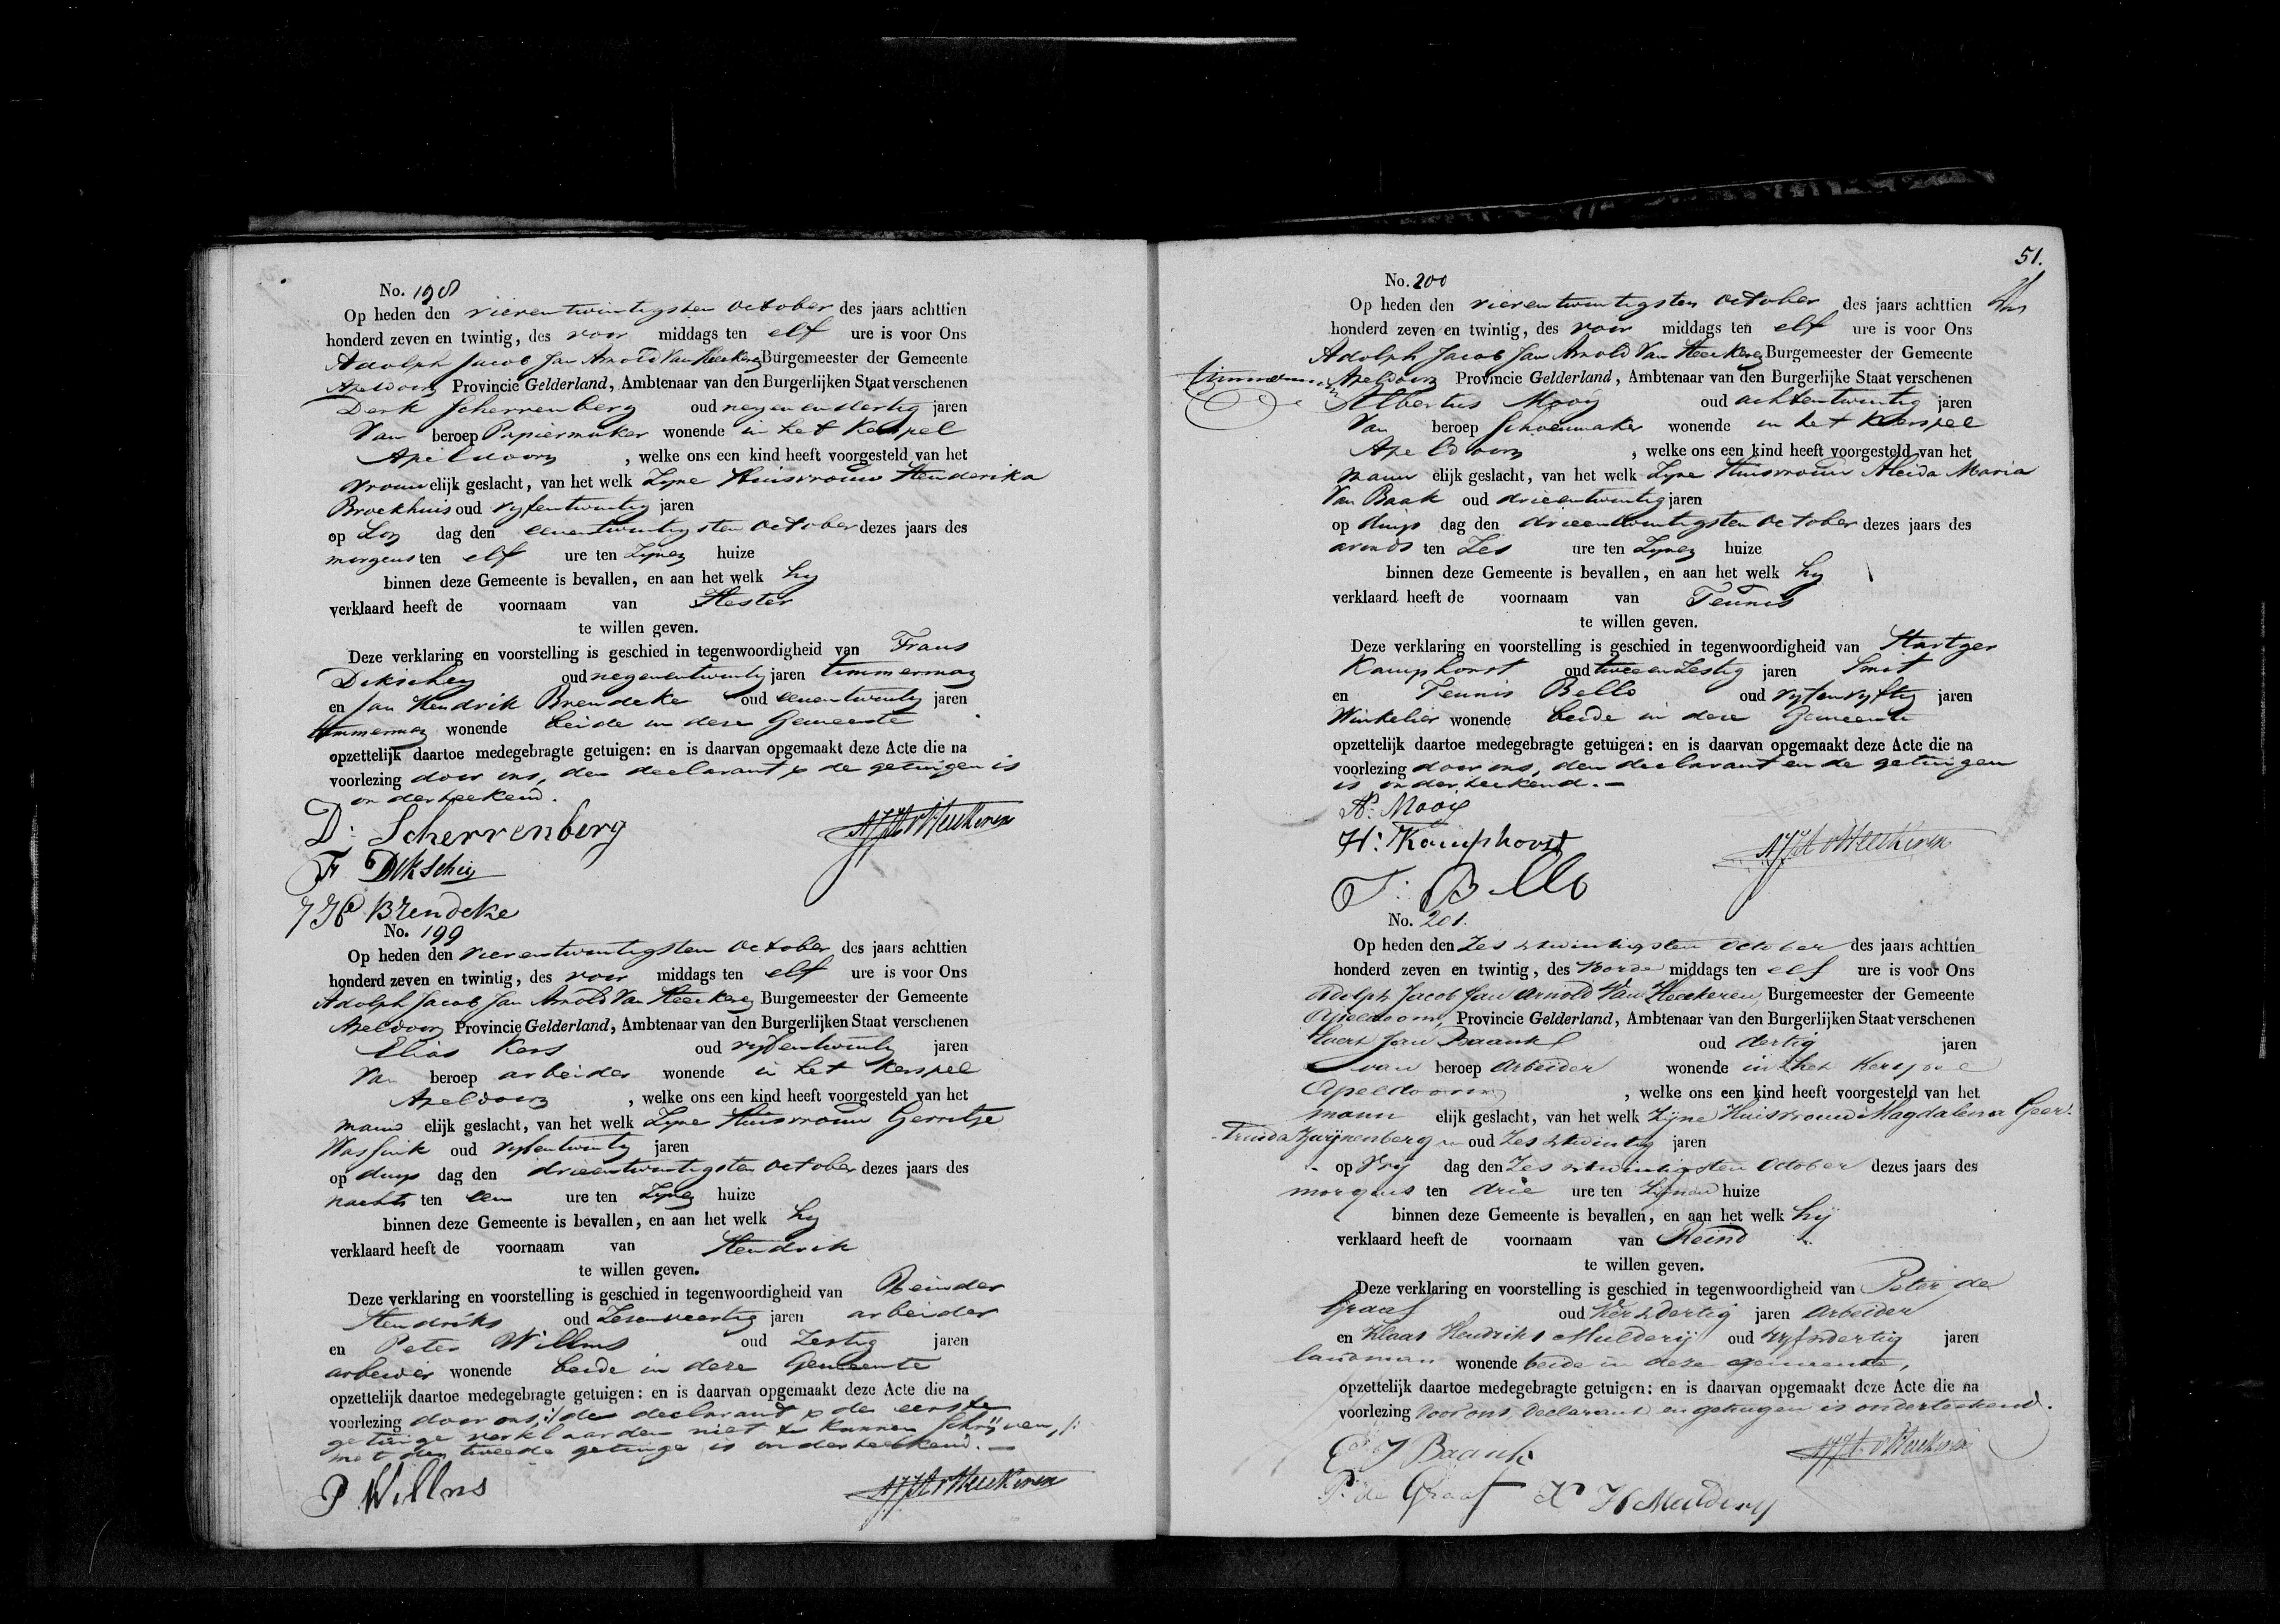 No. 198
Op heden den vierentwintigsten October des jaars achttien
honderd zeven en twintig, des voor middags ten elf ure is voor Ons
Adolph Jacob Jan Arnold Van Heeckeren Burgemeester der Gemeente
Apeldoorn Provincie Gelderland, Ambtenaar van den Burgerlijken Staat verschenen
Derk Scherrenberg oud negenendertig jaren
Van beroep Papiermaker wonende in het Kerspel
Apeldoorn , welke ons een kind heeft voorgesteld van het
vrouwelijk geslacht, van het welk Zyne Huisvrouw Henderika
Broekhuis oud vyfentwintig jaren
op Zon dag den eenentwintigsten October dezes jaars des
morgens ten elf ure ten Zynen huize
binnen deze Gemeente is bevallen, en aan het welk hy
verklaard heeft de voornaam van Hester
te willen geven.
Deze verklaring en voorstelling is geschied in tegenwoordigheid van Frans
Dikschey oud negenentwintig jaren timmerman
en Jan Hendrik Brendeke oud eenentwintig jaren
timmerman wonende beide in deze Gemeente
opzettelijk daartoe medegebragte getuigen: en is daarvan opgemaakt deze Acte die na
voorlezing door ons, den declarant & de getuigen is
onderteekend.
D: Scherrenberg AJJA v Heeckeren
F Dikschey
JH Brendeke
No. 199
Op heden den vierentwintigsten October des jaars achttien
honderd zeven en twintig, des voor middags ten elf ure is voor Ons
Adolph Jacob Jan Arnold Van Heeckeren Burgemeester der Gemeente
Apeldoorn Provincie Gelderland, Ambtenaar van den Burgerlijken Staat verschenen
Elias Kers oud vyfentwintig jaren
Van beroep arbeider wonende in het Kerspel
Apeldoorn , welke ons een kind heeft voorgesteld van het
mannelijk geslacht, van het welk Zyne Huisvrouw Gerritje
Wassink oud vyfentwintig jaren
op dings dag den drieentwintigsten October dezes jaars des
nachts ten een ure ten Zynen huize
binnen deze Gemeente is bevallen, en aan het welk hy
verklaard heeft de voornaam van Hendrik
te willen geven.
Deze verklaring en voorstelling is geschied in tegenwoordigheid van Reinder
Hendriks oud Zesenveertig jaren arbeider
en Peter Willms oud Zestig jaren
arbeider wonende beide in deze Gemeente
opzettelijk daartoe medegebragte getuigen: en is daarvan opgemaakt deze Acte die na
voorlezing door ons, :/ de declarant & de eerste
getuige verklaarden niet te kunnen schrijven, /:
met den tweede getuige is onderteekend. —
P Willms AJJA v Heeckeren
51.
No. 200
Op heden den vierentwintigsten October des jaars achttien
honderd zeven en twintig, des voor middags ten elf ure is voor Ons
Adolph Jacob Jan Arnold Van Heeckeren Burgemeester der Gemeente
Apeldoorn Provincie Gelderland, Ambtenaar van den Burgerlijke Staat verschenen
Albertus Mooy oud achtentwintig jaren
Van beroep Schoenmaker wonende in het Kerspel
Apeldoorn , welke ons een kind heeft voorgesteld van het
mannelijk geslacht, van het welk Zyne Huisvrouw Aleida Maria
Van Baak oud drieentwintig jaren
op dings dag den drieentwintigsten October dezes jaars des
avonds ten Zes ure ten Zynen huize
binnen deze Gemeente is bevallen, en aan het welk hy
verklaard heeft de voornaam van Teunis
te willen geven.
Deze verklaring en voorstelling is geschied in tegenwoordigheid van Hartger
Kamphorst oud tweeenzestig jaren Smit
en Teunis Bello oud vyfenvyftig jaren
Winkelier wonende beide in deze Gemeente
opzettelijk daartoe medegebragte getuigen: en is daarvan opgemaakt deze Acte die na
voorlezing door ons, den declarant en de getuigen
is onderteekend. —
A: Mooij
H: Kamphorst AJJA v Heeckeren
T: Bello
No. 201.
Op heden den Zes & twintigsten October des jaars achttien
honderd zeven en twintig, des voorde middags ten elf ure is voor Ons
Adolph Jacob Jan Arnold Van Heeckeren, Burgemeester der Gemeente
Apeldoorn, Provincie Gelderland, Ambtenaar van den Burgerlijken Staat verschenen
Evert Jan Baank oud dertig jaren
van beroep Arbeider wonende in het Kerspel
Apeldoorn , welke ons een kind heeft voorgesteld van het
mannelijk geslacht, van het welk Zijne Huisvrouw Magdalena Geer-
truida Zwijnenberg oud Zes & twintig jaren
op Vrij dag den Zes & twintigsten October dezes jaars des
morgens ten drie ure ten Zijnen huize
binnen deze Gemeente is bevallen, en aan het welk hij
verklaard heeft de voornaam van Reind
te willen geven.
Deze verklaring en voorstelling is geschied in tegenwoordigheid van Peter de
Graaf oud Vier & dertig jaren Arbeider
en Klaas Hendriks Mulderij oud vyf & dertig jaren
landman wonende beide in deze gemeente,
opzettelijk daartoe medegebragte getuigen: en is daarvan opgemaakt deze Acte die na
voorlezing door ons, Declarant en getuigen is onderteekend.
E J Baank AJJA v Heeckeren
P: de Graaf K H Mulderij